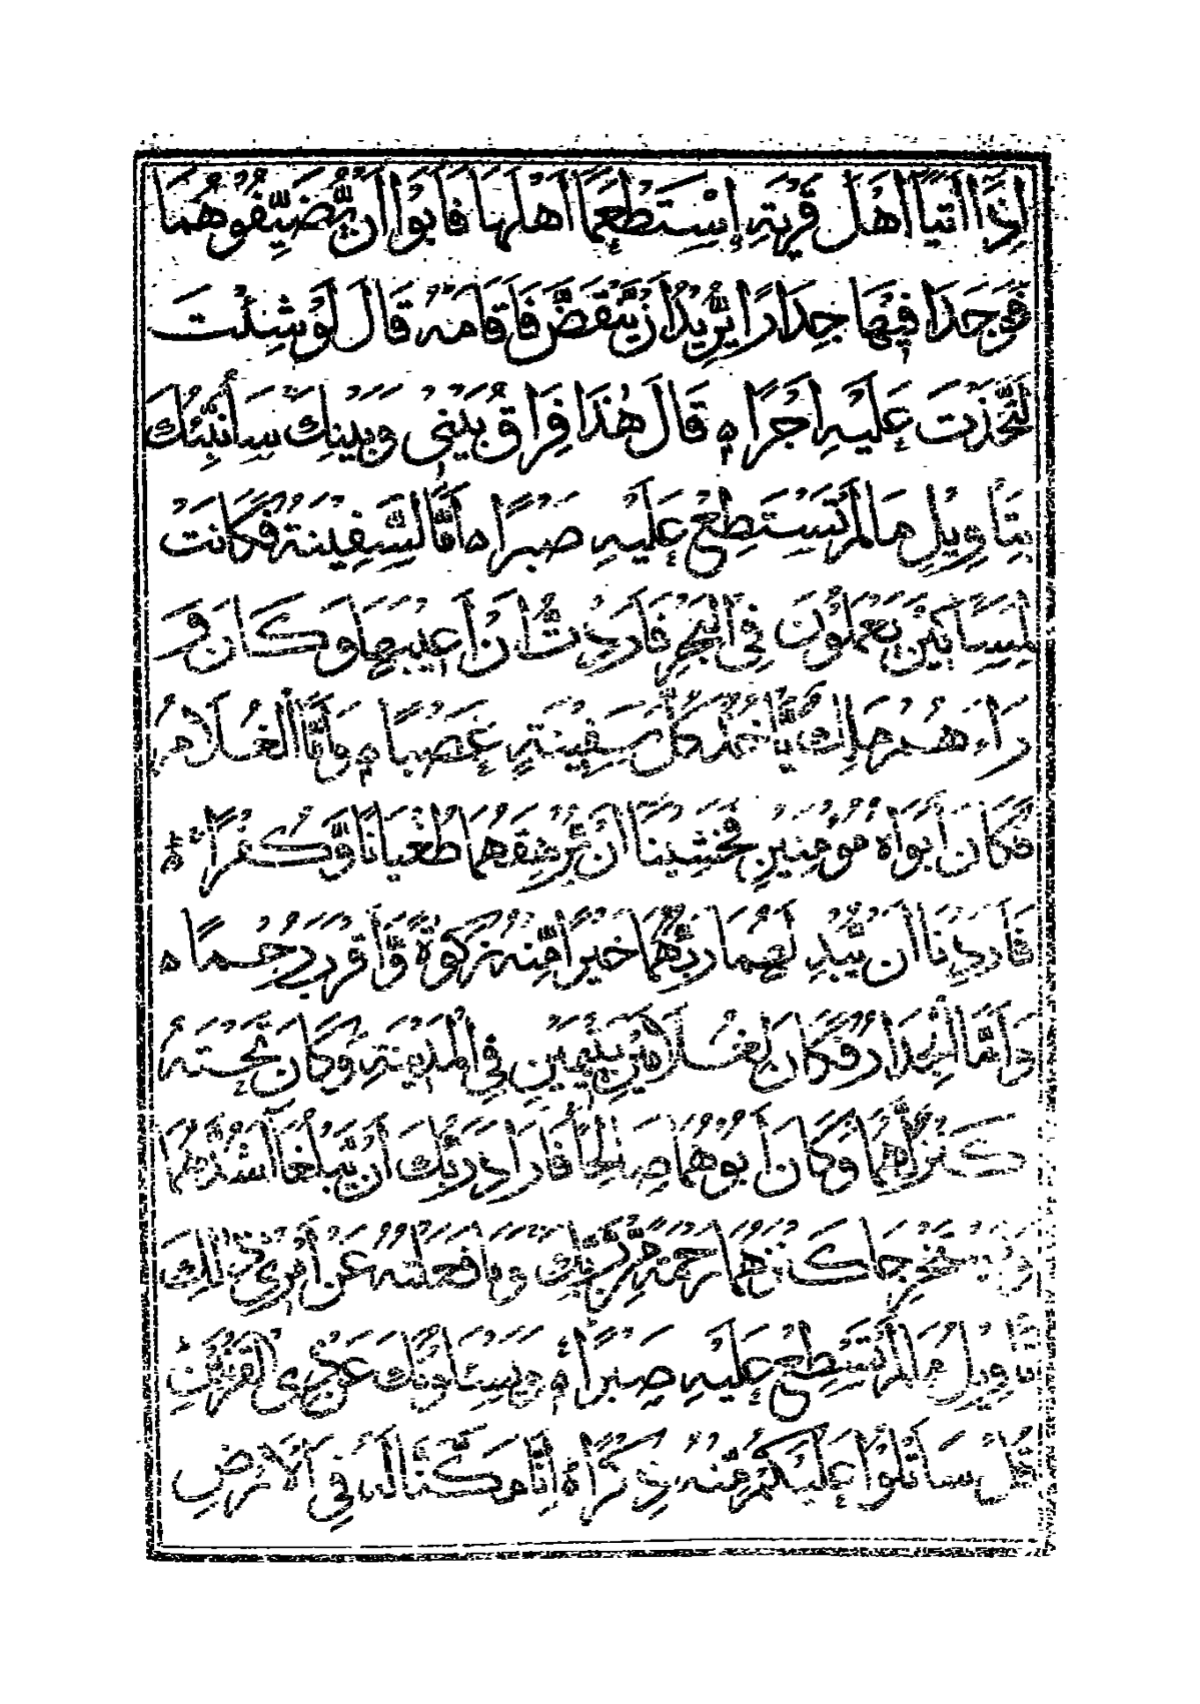 اِذَا اَتَيَا اَهْلَ قَرْيَةِ اِسْتَطْعَمَا اَهْلَهَا فَاَبَوْا اَنْ يُّضَيِّفُوْهُمَا
فَوَجَدَا فِيْهَا جِدَارًا يُّرِيْدُ اَنْ يَّنْقَضَّ فَاَقَامَهٗ قَالَ لَوْ شِئْتَ
لَتَّخَذْتَ عَلَيْهِ اَجْرًا ٥ قَالَ هٰذَا فِرَاقُ بَيْنِيْ وَبَيْنِكَ سَاُنَبِّئُكَ
بِتَاْوِيْلِ مَا لَمْ تَسْتَطِعْ عَلَيْهِ صَبْرًا ٥ اَمَّا السَّفِيْنَةُ فَكَانَتْ
لِمَسَاكِيْنَ يَعْمَلُوْنَ فِى الْبَحْرِ فَاَرَدْتُّ اَنْ اَعِيْبَهَا وَكَانَ وَ
رَآءَهُمْ مَلِكٌ يَّاْخُذُ كُلَّ سَفِيْنَةٍ غَصْبًا ٥ وَاَمَّا الْغُلَامُ
فَكَانَ اَبَوَاهُ مُؤْمِنَيْنِ فَخَشِيْنَا اَنْ يُّرْهِقَهُمَا طُغْيَانًا وَّكُفْرًا
فَاَرَدْنَا اَنْ يُّبْدِلَهُمَا رَبُّهُمَا خَيْرًا مِّنْهُ زَكٰوةً وَّاَقْرَبَ رُحْمًا ٥
وَاَمَّا الْجِدَارُ فَكَانَ لِغُلَامَيْنِ يَتِيْمَيْنِ فِى الْمَدِيْنَةِ وَكَانَ تَحْتَهٗ
كَنْزٌ لَّهُمَا وَكَانَ اَبُوْهُمَا صَالِحًا فَاَرَادَ رَبُّكَ اَنْ يَّبْلُغَا اَشُدَّهُمَا
وَيَسْتَخْرِجَا كَنْزَهُمَا رَحْمَةً مِّنْ رَّبِّكَ وَمَا فَعَلْتُهٗ عَنْ اَمْرِيْ ذٰلِكَ
تَاْوِيْلُ مَا لَمْ تَسْطِعْ عَلَيْهِ صَبْرًا ٥ وَيَسْئَلُوْنَكَ عَنْ ذِى الْقَرْنَيْنِ
قُلْ سَاَتْلُوْا عَلَيْكُمْ مِّنْهُ ذِكْرًا ٥ اِنَّا مَكَّنَّا لَهٗ فِى الْاَرْضِ